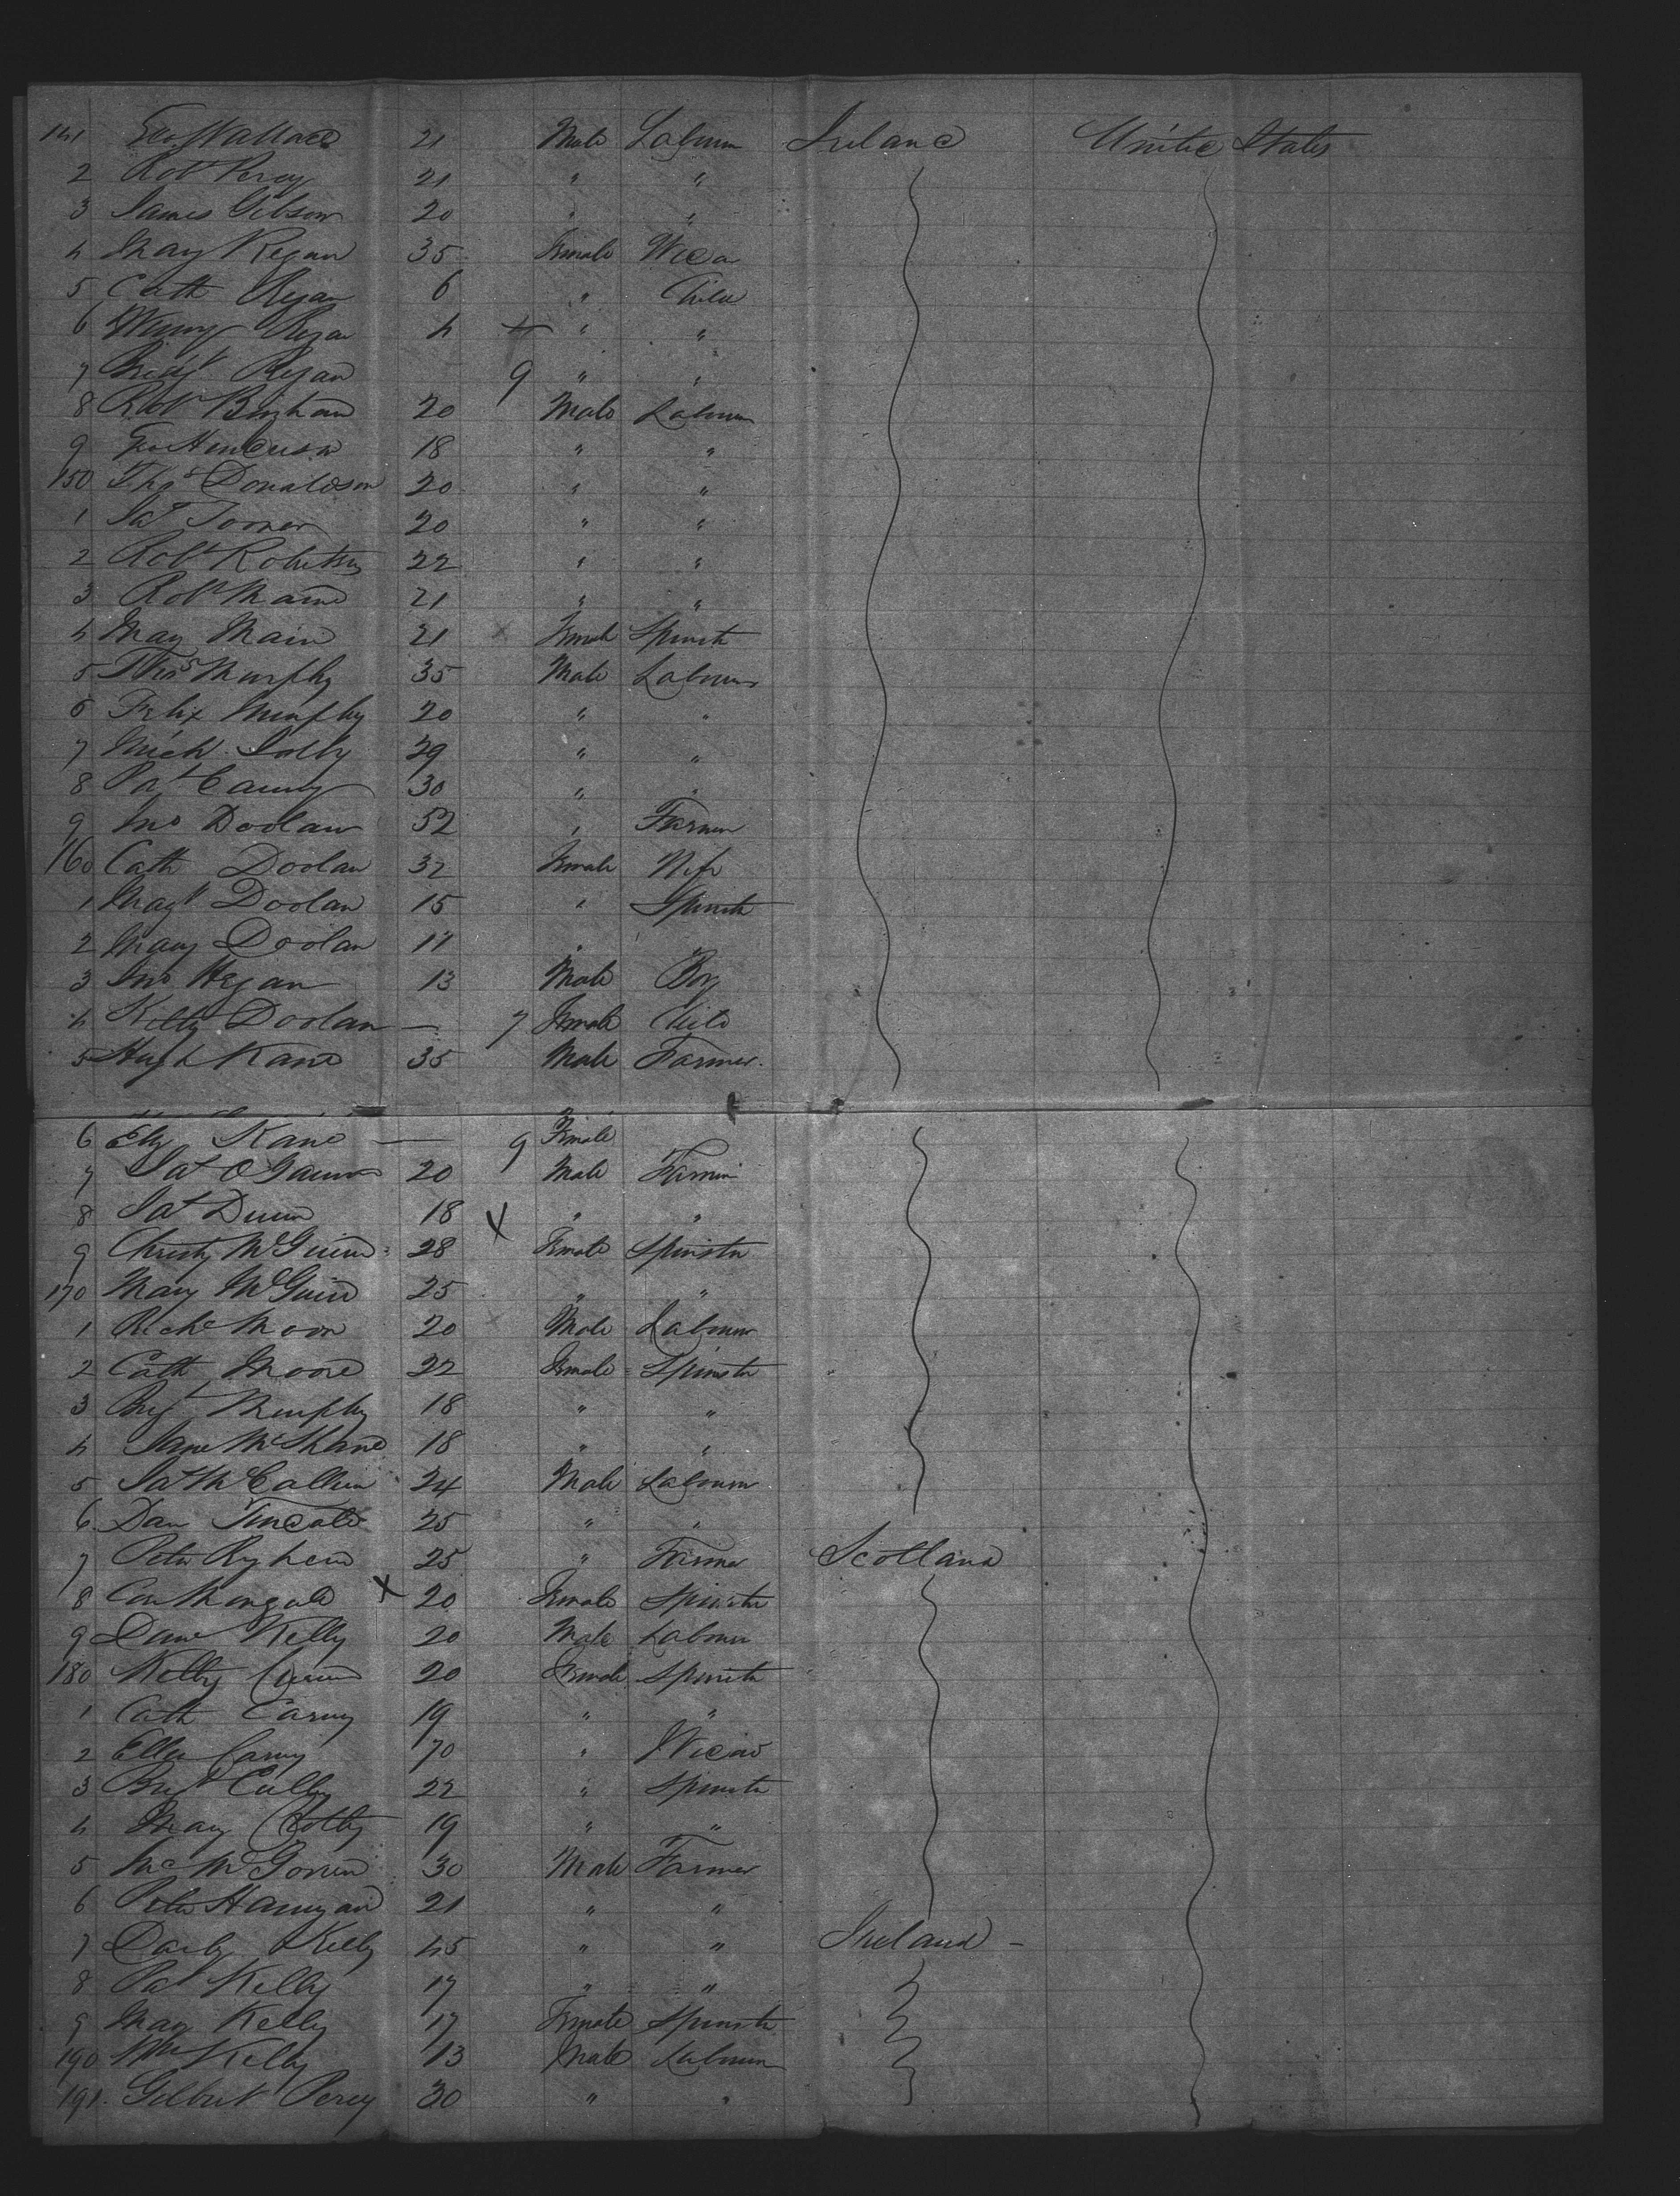 141 Geo. Wallace 21 Male Labourer Ireland United States
2 Robt Percy 21 " "
3 James Gibson 20 " "
4 Mary Regan 35 Female Widow
5 Cath Regan 6 " Child
6 Winny Regan 4 " "
7 Bridgt Regan 9 " "
8 Robt Bingham 20 Male Labourer
9 Geo Henderson 18 " "
150 Thos Donaldson 20 " "
1 Jas Toner 20 " "
2 Robt Robertson 22 " "
3 Robt Main 21 " "
4 Mary Main 21 Female Spinster
5 Thos Murphy 35 Male Labourer
6 Felix Murphy 20 " "
7 Mich 29 " "
8 Pat Carney 30 " "
9 Jno Doolan 52 " Farmer
160 Cath Doolan 32 Female Wife
1 Magt Doolan 15 " Spinster
2 Mary Doolan 17 " "
3 Jno Hegan 13 Male Boy
4 Kitty Doolan — 7 Female Child
5 Hugh Kane 35 Male Farmer
6 Elly Kane — 9 Female
7 20 Male Farmer
8 18 X " "
9 Christy McGuire 28 Female Spinster
170 Mary McGuire 25 " "
1 Richd Moon 20 Male Labourer
2 Cath Moore 22 Female Spinster
3 Brgt Murphy 18 " "
4 Jane McShane 18 " "
5 24 Male Labourer
6 Dan 25 " "
7 Peter 25 " Farmer Scotland
8 X 20 Female Spinster
9 Danl Kelly 20 Male Labourer
180 20 Female Spinster
1 Cath Carny 19 " "
2 Ellen Carny 70 " Widow
3 Brgt Culley 22 " Spinster
4 Mary 19 " "
5 Jno McGovern 30 Male Farmer
6 Peter Hanigan 21 " "
7 Darby Kelly 45 " " Ireland -
8 Pat Kelly 17 " "
9 Mary Kelly 17 Female Spinster
190 Wm Kelly 13 Male Labourer
191. Gilbert Percy 30 " "